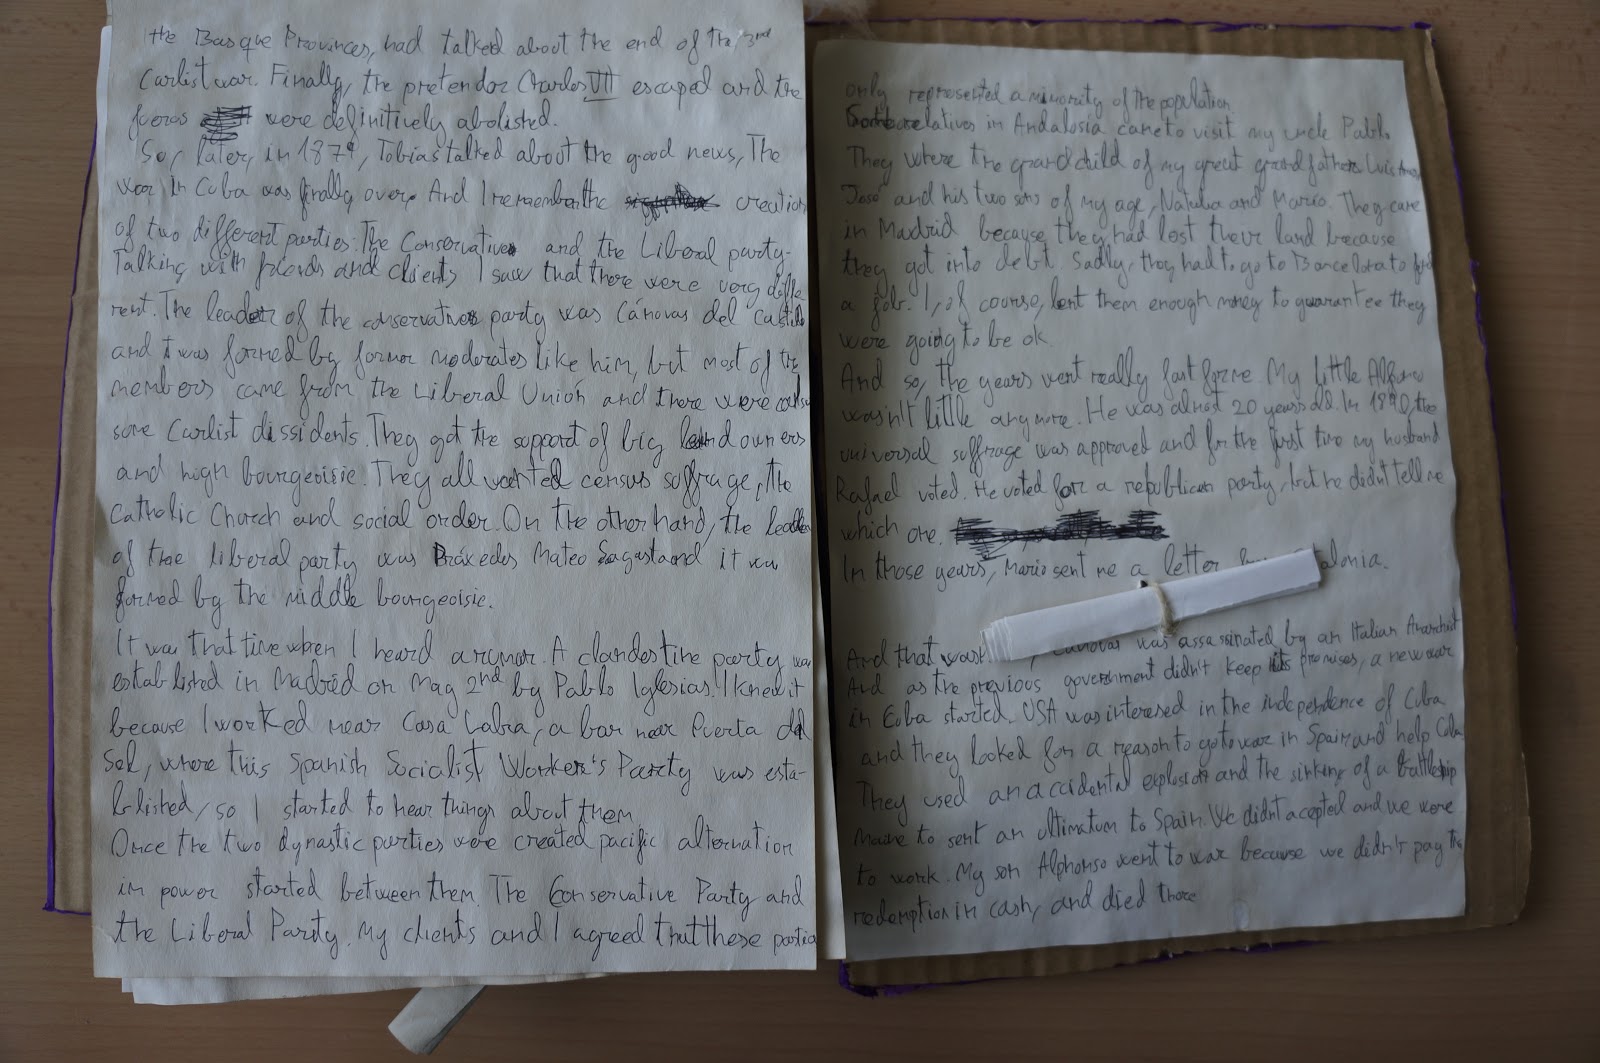 the Basque Provinces, had talked about the end of the 3rd
Carlist war. Finally, the pretendor Charles VII escaped and the
fueros were definitively abolished.
So, later, in 1879, Tobias talked about the good news, The
war in Cuba was finally over. And I remember the creation
of two different parties. The Conservatives and the Liberal party.
Talking with friends and clients, I saw that there were very diffe
rent. The leader of the conservatives party was Cánovas del Castillo
and it was formed by former moderates like him, but most of the
members came from the Liberal Unión and there were also
some Carlist dissidents. They got the support of big land owners
and high bourgeoisie. They all wanted census suffrage, the
Catholic Church and social order. On the other hand, the leader
of the liberal party was Práxedes Mateo Sagasta and it was
formed by the middle bourgeoisie.
It was that time when I heard a rumor. A clandestine party was
established in Madrid on May 2nd by Pablo Iglesias. I knew it
because I worked near Casa Labra, a bar near Puerta del
Sol, where this Spanish Socialist Worker's Party was esta-
blished, so I started to hear things about them.
Once the two dynastic parties were created pacific alternation
in power started between them. The Conservative Party and
the Liberal Party. My clients and I agreed that these parties
only represented a minority of the population.
Some relatives in Andalosia came to visit my uncle Pablo
They where the grandchild of my great grandfather Luis
José and his two sons of my age, Natalia and Mario. They came
in Madrid because they had lost their land because
they got into debt. Sadly, they had to go to Barcelona to find
a job. I, of course, lent them enough money to guarantee they
were going to be ok.
And so, the years went really fast for me. My little Alfonso
wasn't little anymore. He was almost 20 years old. In 1890, the
universal suffrage was approved and for the first time my husband
Rafael voted. He voted for a republican party, but he didn't tell me
which one.
In those years, Mario sent me a letter
And that was Canovas was assassinated by an Italian Anarchist
And as the previous government didn't keep its promises, a new war
in Cuba started. USA was interesed in the independence of Cuba
and they looked for a reason to go to war in Spain and help Cuba
They used an accidental explosion and the sinking of a battleship
Maine to sent an ultimatum to Spain. We didn't acepted and we were
to work. My son Alphonso went to war because we didn't pay the
redemption in cash, and died there